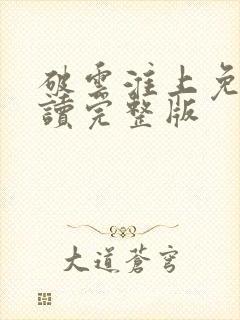 破雲淮上免
讀完整版
大道蒼穹